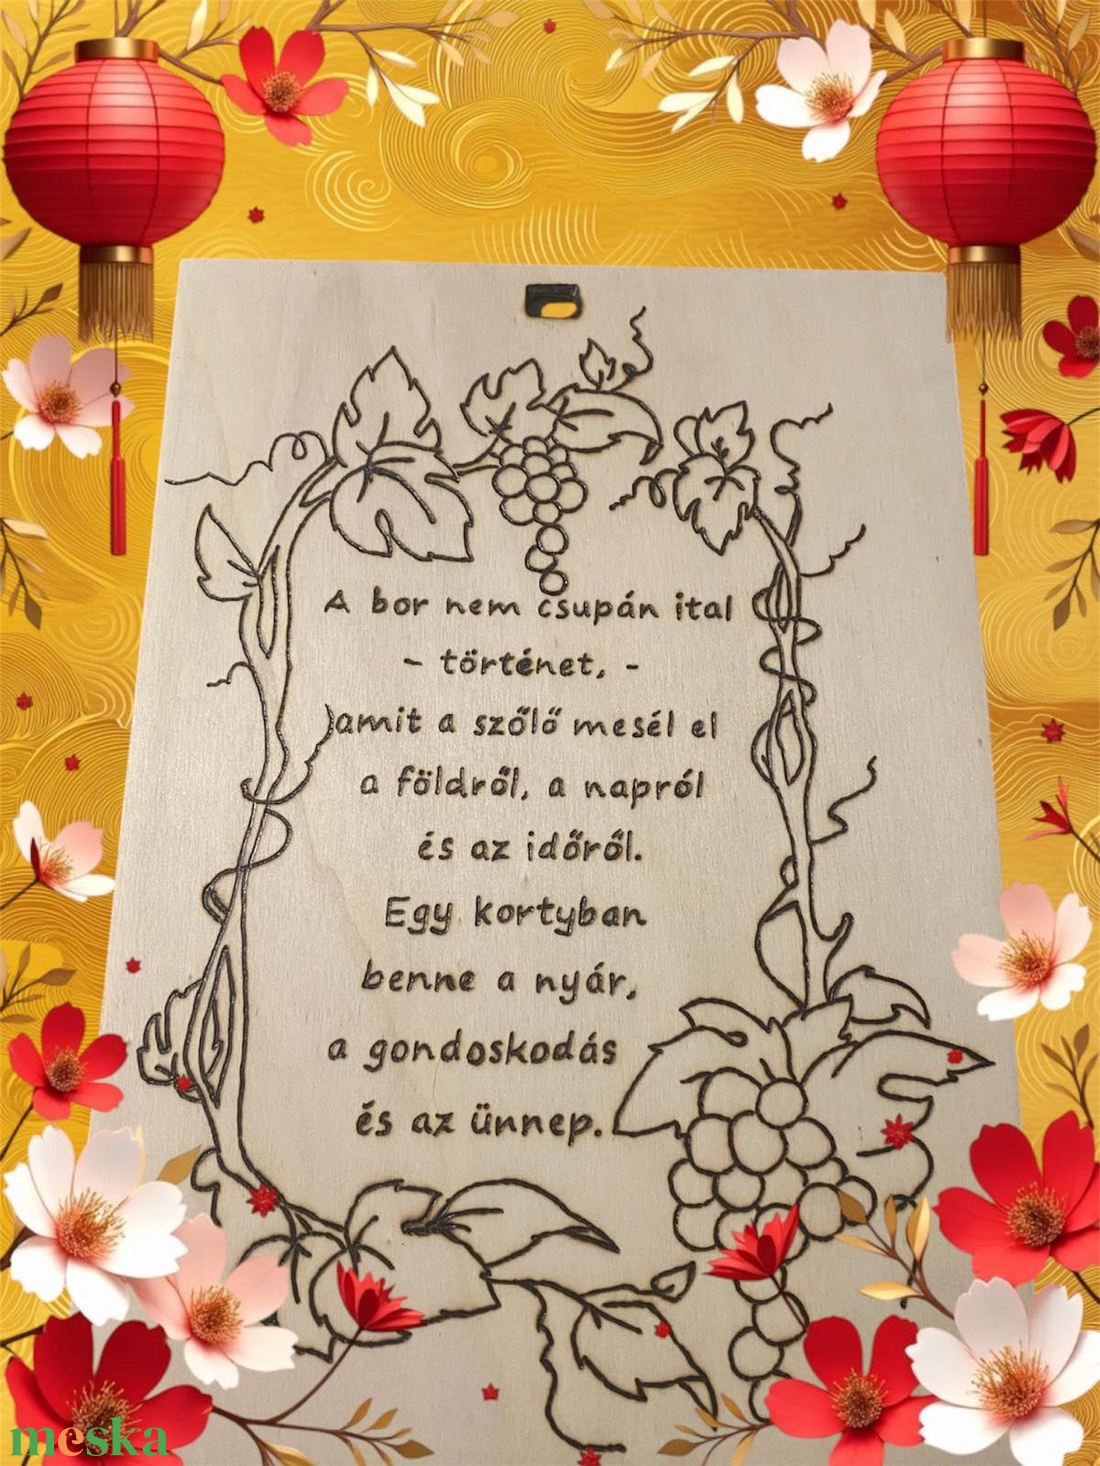 A bor nem csupán ital
- történet, -
amit a szőlő mesél el
a földről, a napról
és az időről.
Egy kortyban
benne a nyár,
a gondoskodás
és az ünnep.
meska